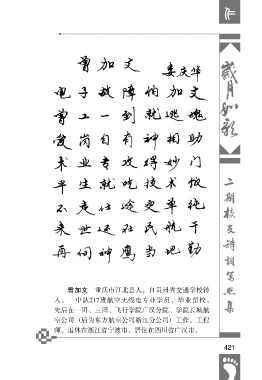 作
岁月如歌
二期校友诗词写照集
曾加文
娄庆华
电子故障怕加文
曾工一到就逃魂
废岗自有神相助
术业专攻得妙门
平生就吃技术饭
不走仕途更单纯
来世还在民航干
再向神鹰当地勤
曾加文 重庆市江北县人,自贵州省交通学校转
入。一中队217班航空无线电专业学员,毕业留校。
先后在一团、三团、飞行学院广汉分院、学院长城航
空公司(后为东方航空公司浙江分公司)工作。工程
师。退休在浙江省宁波市,居住在四川省广汉市。
421